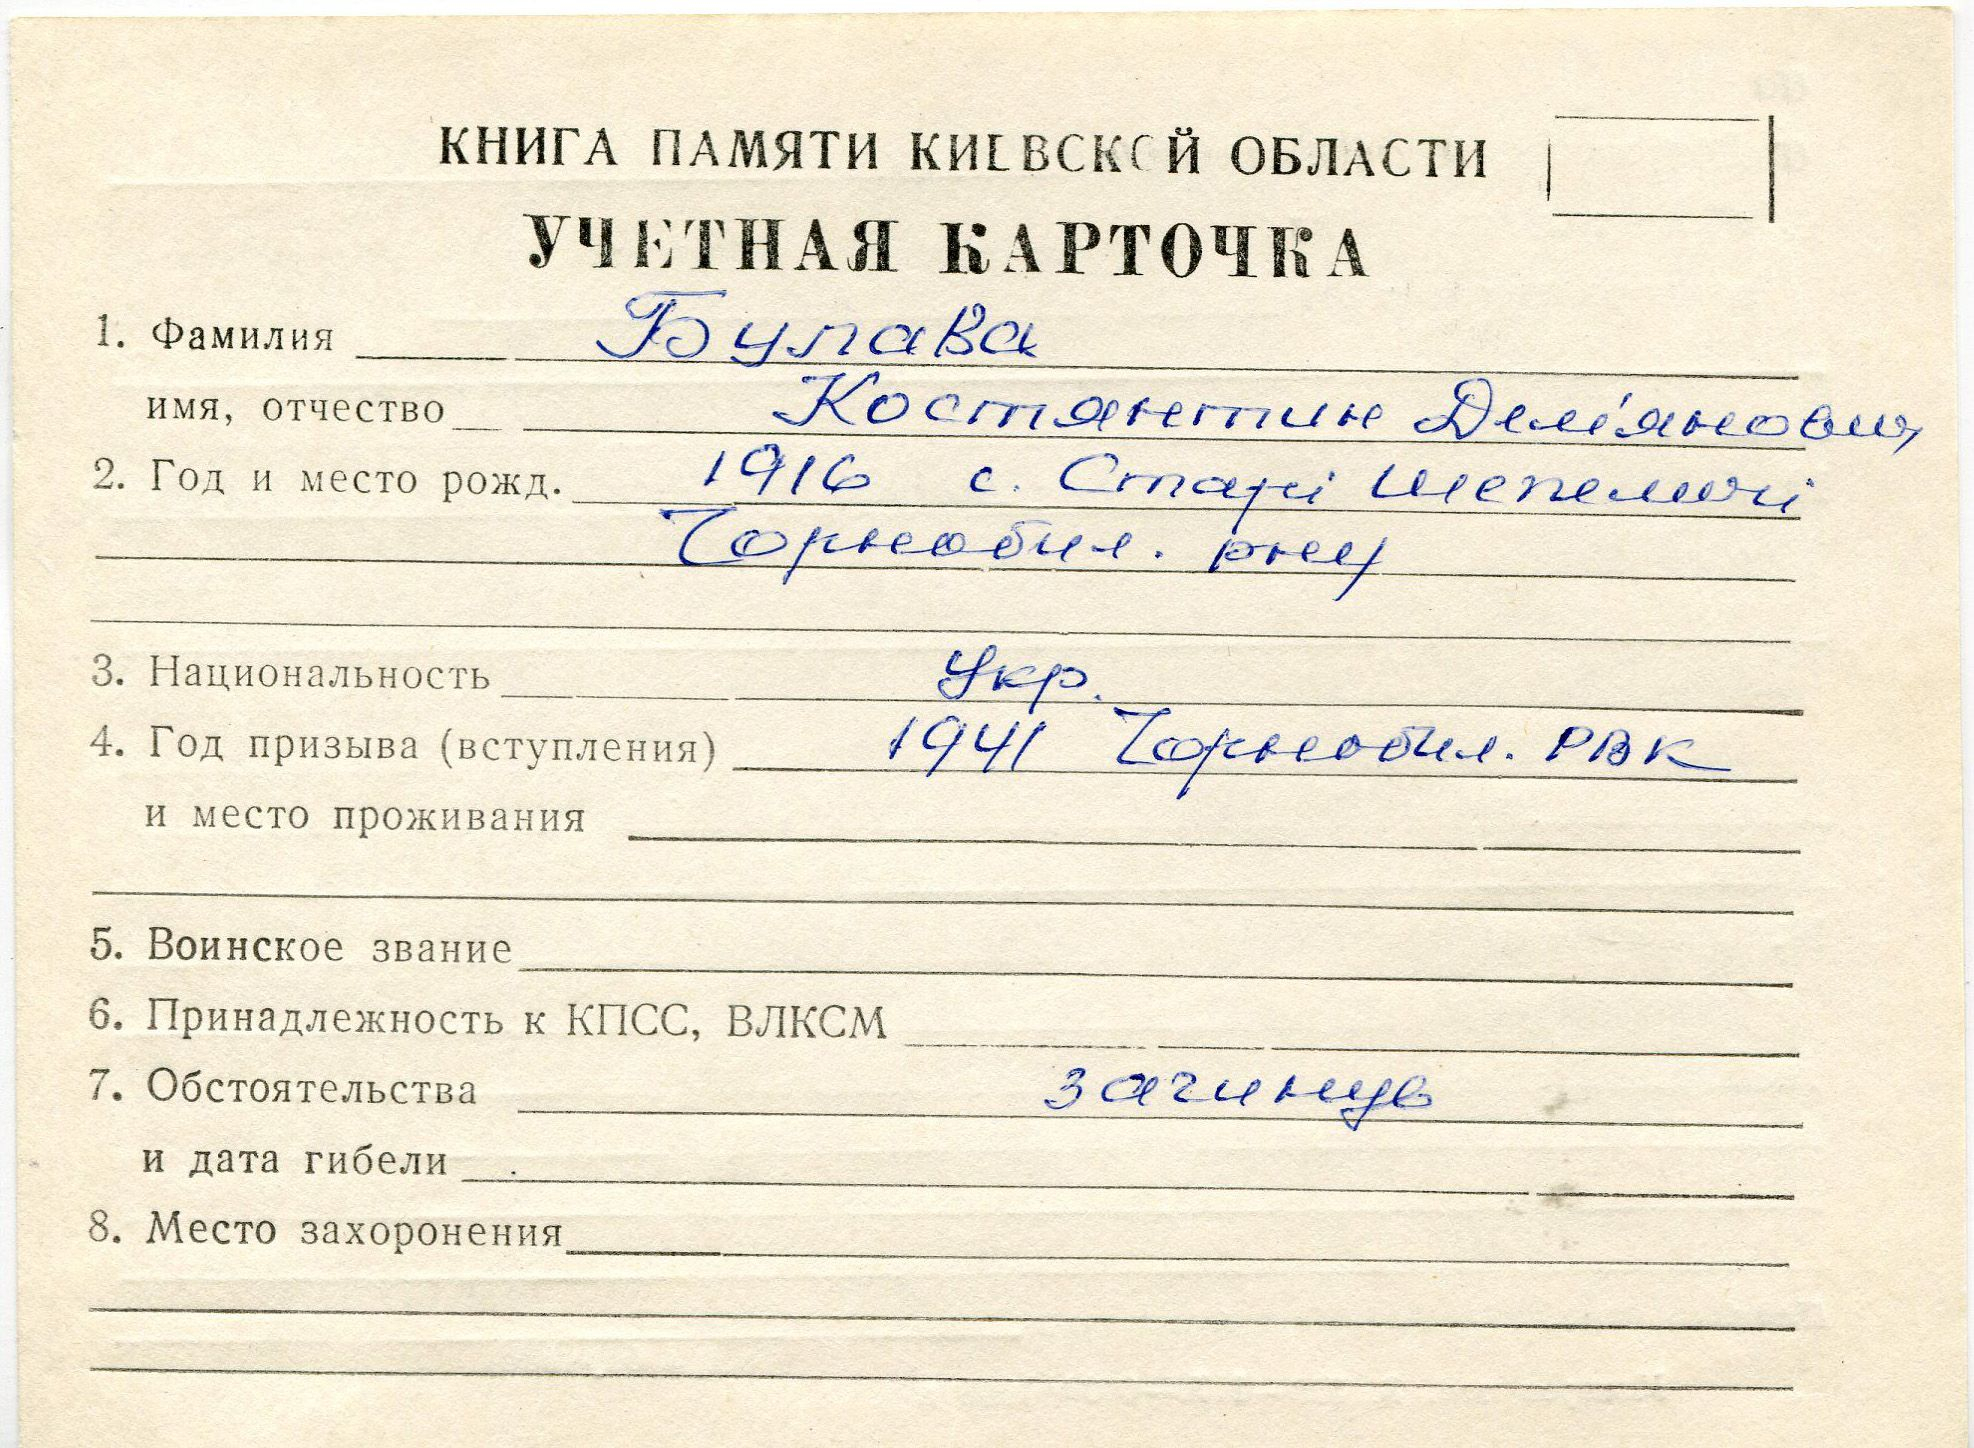 КНИГА ПАМЯТИ КИЕВСКОЙ ОБЛАСТИ
УЧЕТНАЯ КАРТОЧКА
1. Фамилия Булава
имя, отчество Костянтин Дем'янович
2. Год и место рожд. 1916 с. Старі Шепеличі
Чорнобил. р-ну
3. Национальность Укр.
4. Год призыва (вступления) 1941 Чорнобил. РВК
и место проживания
5. Воинское звание
6. Принадлежность к КПСС, ВЛКСМ
7. Обстоятельства загинув
и дата гибели
8. Место захоронения